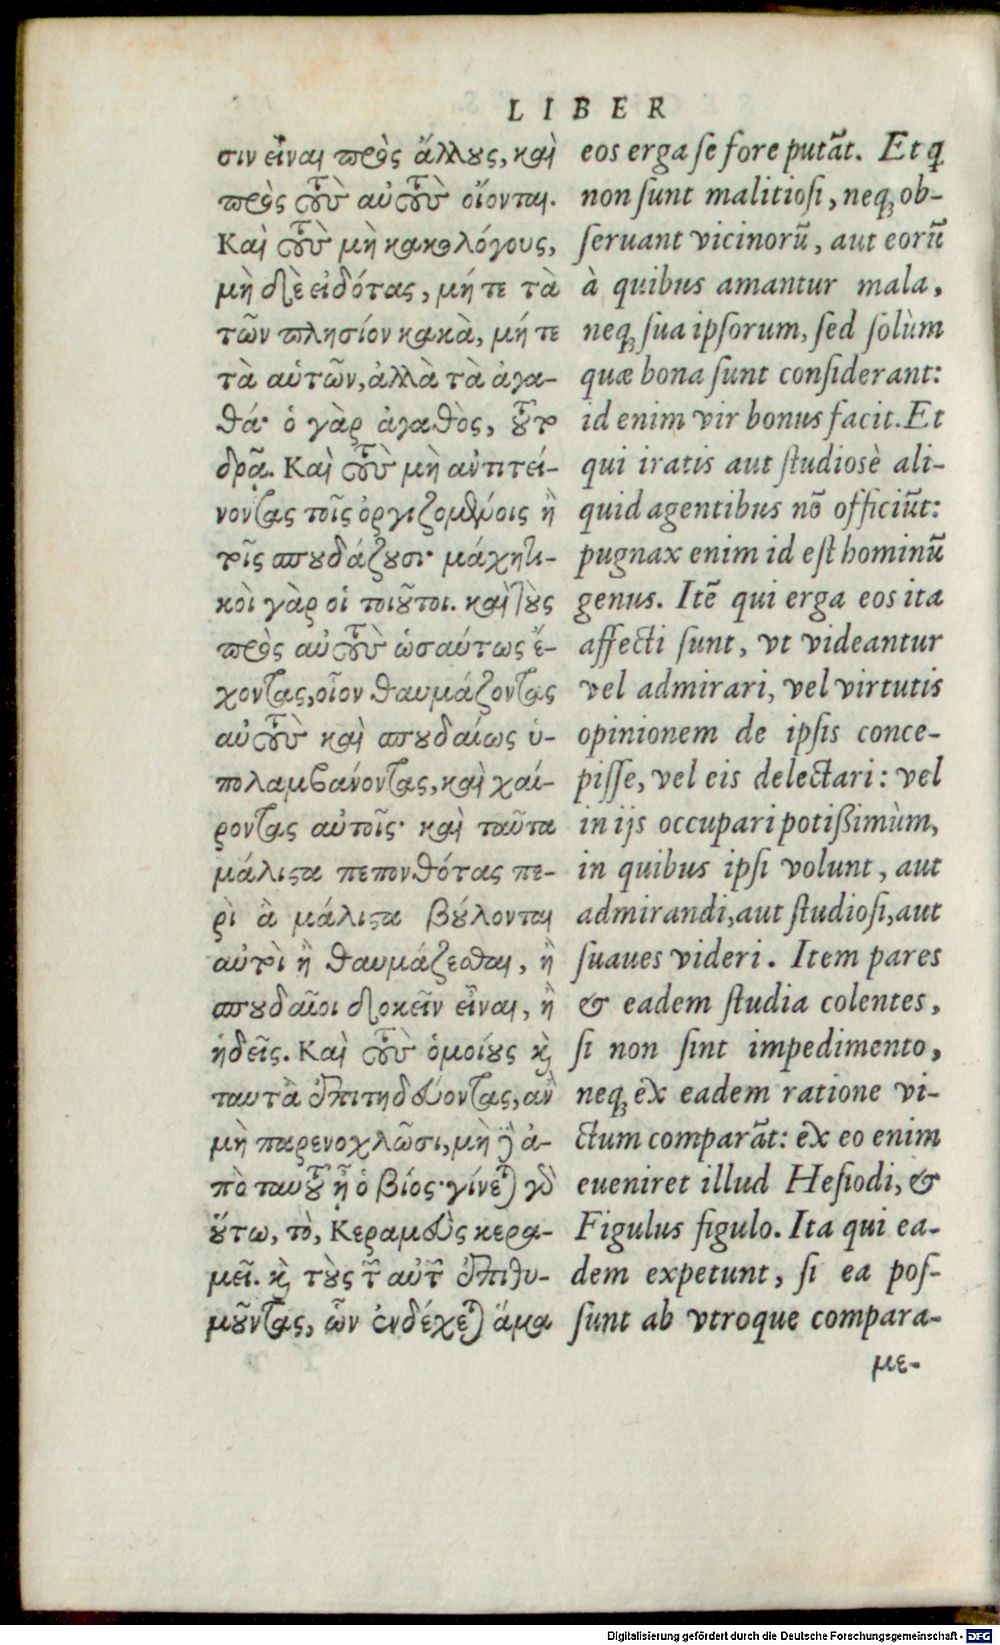 LIBER
σιν εἶναι πρὸς ἄλλους, καὶ
πρὸς τοὺς αὐτοὺς οἴονται.
Καὶ τοὺς μὴ κακολόγους,
μὴ δὲ εἰδότας, μήτε τὰ
τῶν πλησίον κακὰ, μήτε
τὰ αὑτῶν, ἀλλὰ τὰ ἀγα-
θά· ὁ γὰρ ἀγαθὸς, τοῦτο
δρᾷ. Καὶ τοὺς μὴ ἀντιτεί-
νοντας τοῖς ὀργιζομένοις ἢ
τοῖς σπουδάζουσι· μάχητι-
κοὶ γὰρ οἱ τοιοῦτοι. καὶ τοὺς
πρὸς αὐτοὺς ὡσαύτως ἔ-
χοντας, οἷον θαυμάζοντας
αὐτοὺς καὶ σπουδαίως ὑ-
πολαμβάνοντας, καὶ χαί-
ροντας αὐτοῖς· καὶ ταῦτα
μάλιστα πεπονθότας πε-
ρὶ ἃ μάλιστα βούλονται
αὐτοὶ ἢ θαυμάζεσθαι, ἢ
σπουδαῖοι δοκεῖν εἶναι, ἢ
ἡδεῖς. Καὶ τοὺς ὁμοίους καὶ
ταυτὰ ἐπιτηδεύοντας, ἂν
μὴ παρενοχλῶσι, μὴ δ᾽ ἀ-
πὸ ταυτοῦ ᾖ ὁ βίος· γίνεται γὰρ
οὕτω, τὸ, Κεραμεὺς κερα-
μεῖ. καὶ τοὺς τῶν αὐτῶν ἐπιθυ-
μοῦντας, ὧν ἐνδέχεται ἅμα
eos erga se fore putāt. Et q
non sunt malitiosi, neq; ob-
seruant vicinorū, aut eorū
à quibus amantur mala,
neq; sua ipsorum, sed solùm
quæ bona sunt considerant:
id enim vir bonus facit. Et
qui iratis aut studiosè ali-
quid agentibus nō officiūt:
pugnax enim id est hominū
genus. Itē qui erga eos ita
affecti sunt, vt videantur
vel admirari, vel virtutis
opinionem de ipsis conce-
pisse, vel eis delectari: vel
in ijs occupari potißimùm,
in quibus ipsi volunt, aut
admirandi, aut studiosi, aut
suaues videri. Item pares
& eadem studia colentes,
si non sint impedimento,
neq; ex eadem ratione vi-
ctum comparāt: ex eo enim
eueniret illud Hesiodi, &
Figulus figulo. Ita qui ea-
dem expetunt, si ea pos-
sunt ab vtroque compara-
με-
Digitalisierung gefördert durch die Deutsche Forschungsgemeinschaft - DFG